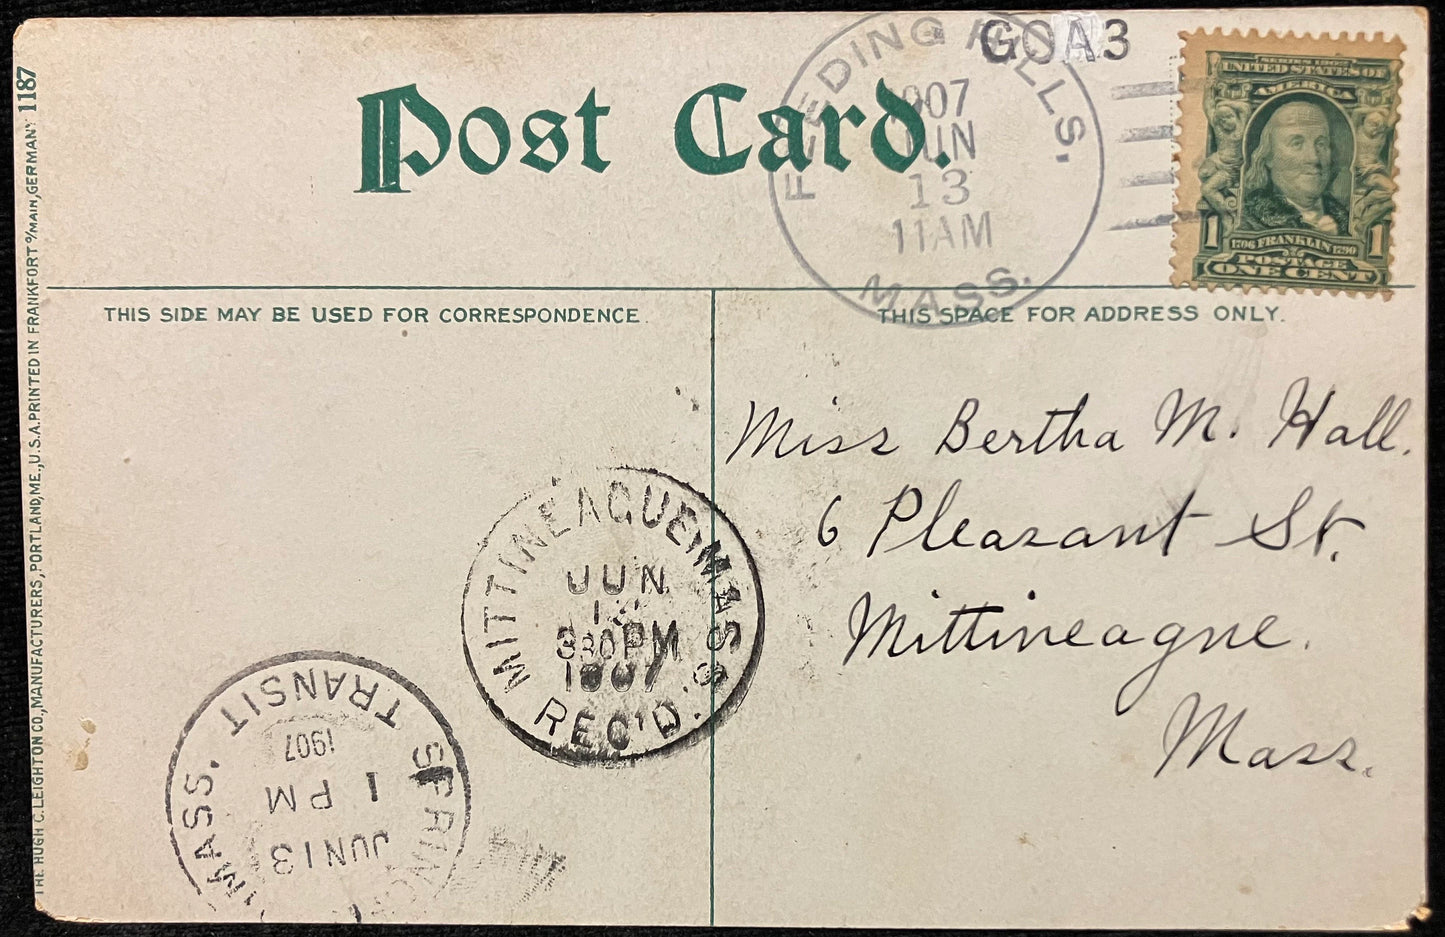 GOA3
FEEDING HILLS,
1907
JUN
13
11AM
MASS.
SERIES 1902
UNITED STATES OF
AMERICA
1 1
1706 FRANKLIN 1790
POSTAGE
ONE CENT
Post Card.
THIS SIDE MAY BE USED FOR CORRESPONDENCE.
THIS SPACE FOR ADDRESS ONLY.
Miss Bertha M. Hall.
6 Pleasant St.
Mittineague.
Mass.
MITTINEAGUE, MASS.
JUN
13
330PM
1907
REC'D.
MASS. TRANSIT
1907
1 PM
JUN 13
THE HUGH C. LEIGHTON CO., MANUFACTURERS, PORTLAND, ME., U.S.A. PRINTED IN FRANKFORT o/MAIN, GERMANY 1187